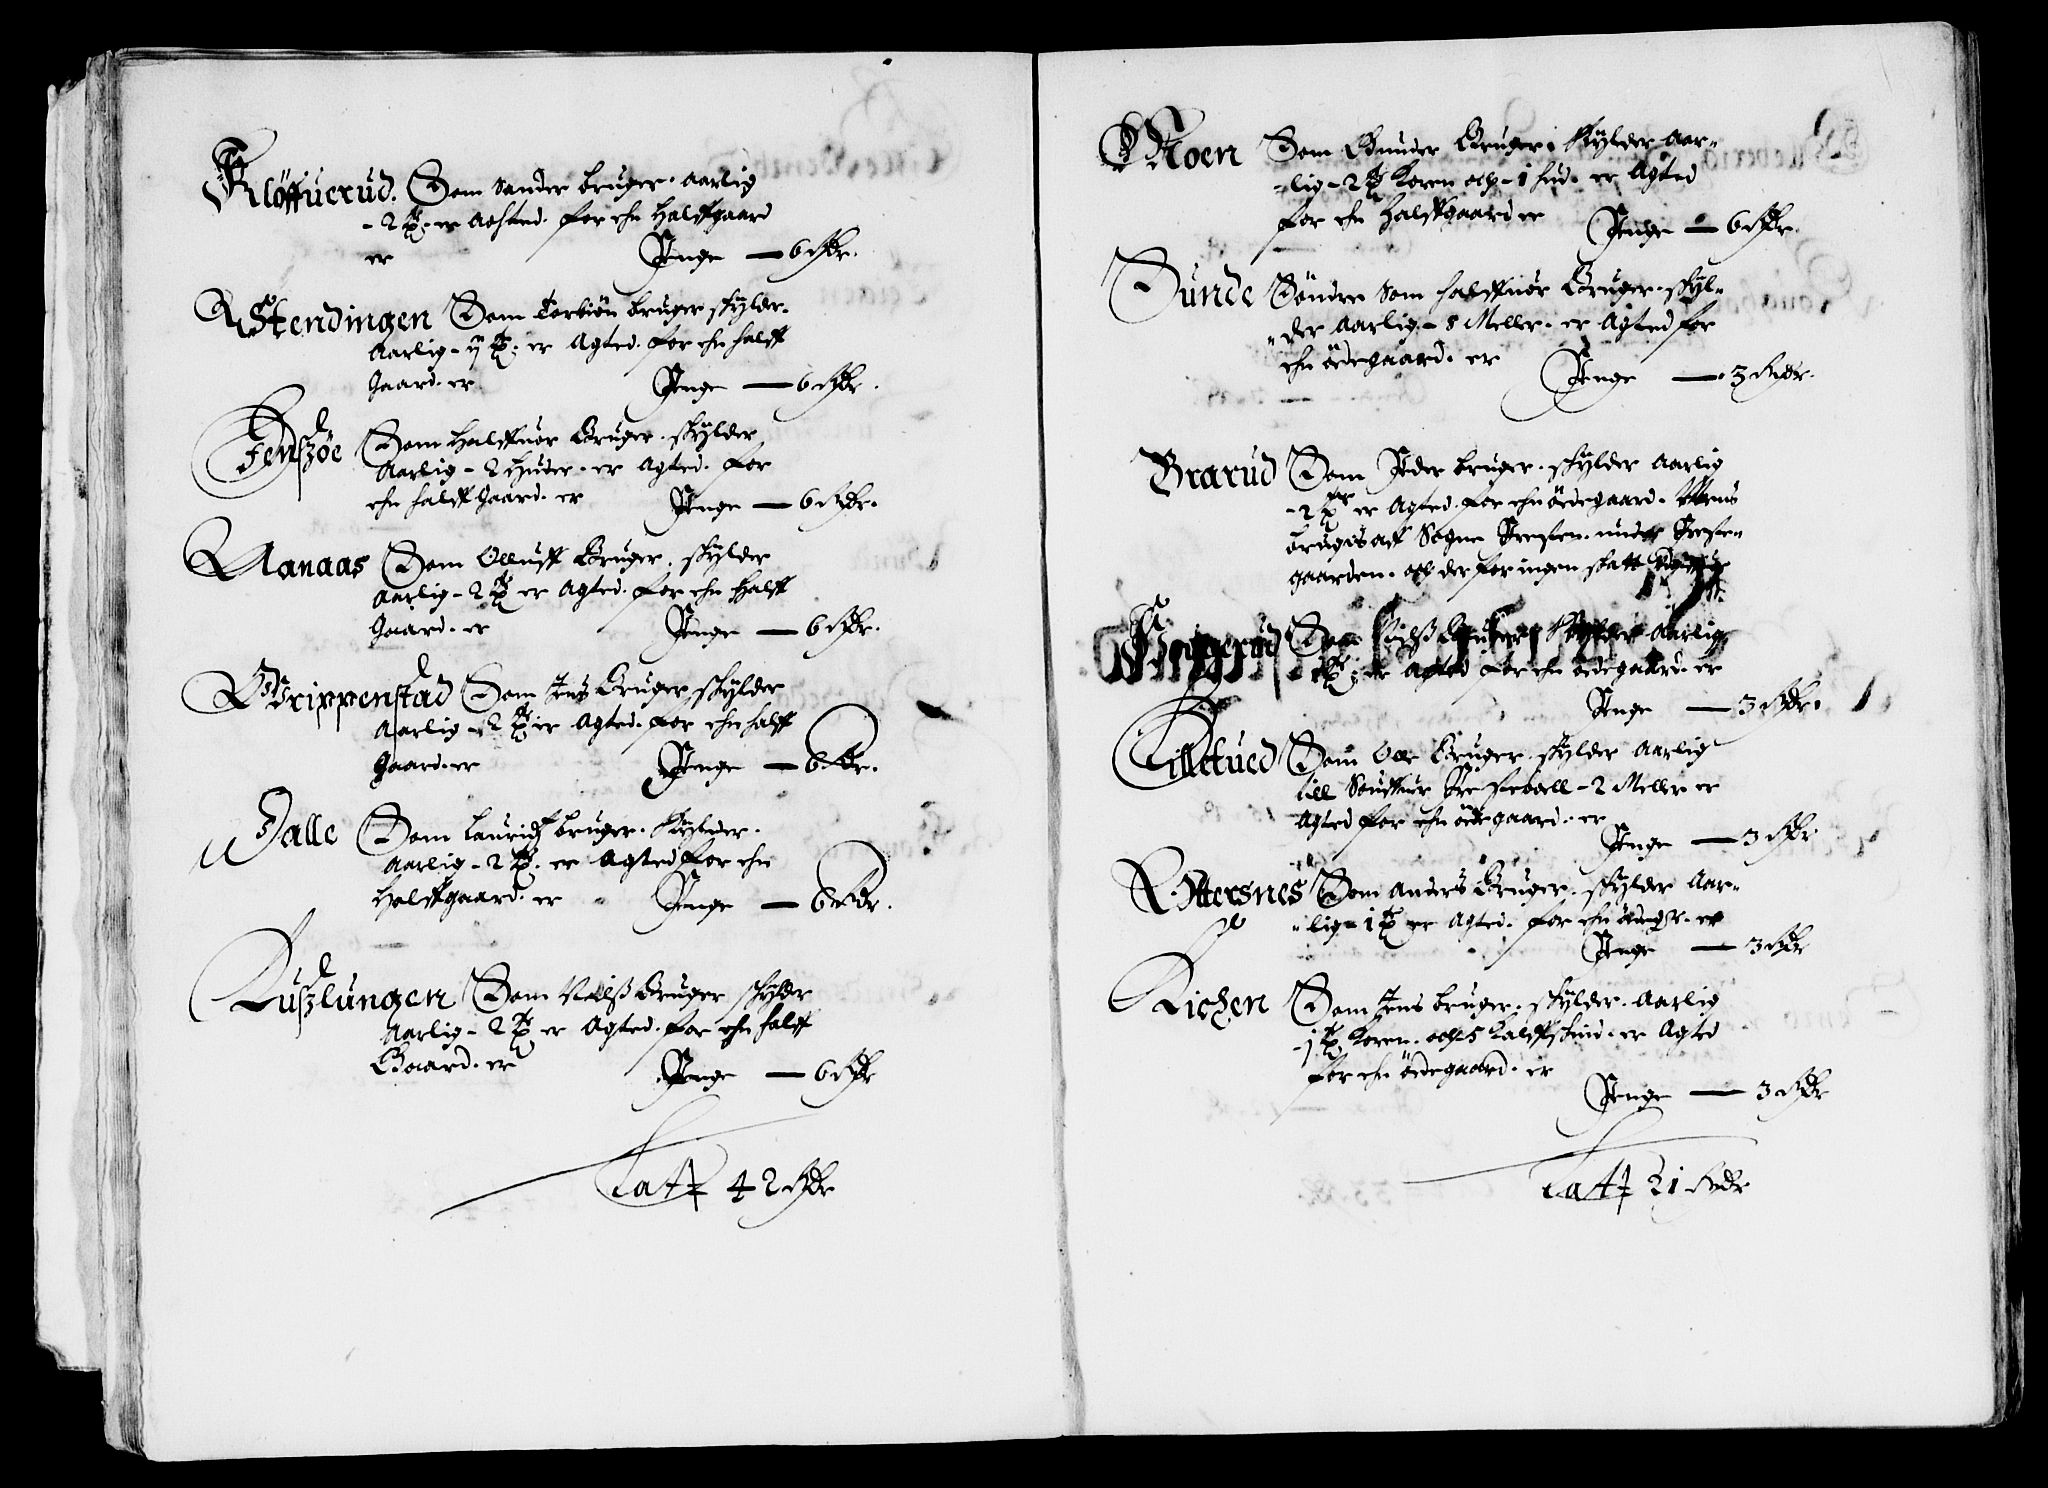 Kløffuerud. Som Sander bruger. aarlig
- 2 tø. er Achted. for ehn Halffgaard
er Penge — 6 Rdr.
Stendingen Som Torbiön bruger skylder.
Aarlig - ij tø. er Agted. for ehn halff
Gaard. er Penge — 6 Rdr.
Fenszöe Som Halffuor Bruger. skylder
Aarlig - 2 Huder. er Agted. for
ehn halff Gaard. er Penge — 6 Rdr.
Aanaas Som Olluff Bruger. skylder
Aarlig - 2 tø er Agted. for ehn Halff
Gaard. er Penge — 6 Rdr.
Grippenstad Som Jens Bruger skylder
Aarlig - 2 tø er Agted. for ehn halff
Gaard. er Penge — 6 Rdr.
Dalle Som Lauridz bruger. Skylder.
Aarlig - 2 tø. er Agted for ehn
Halffgaard. er Penge — 6 Rdr.
Luszlungen Som Nielß Bruger skylder
Aarlig - 2 tø er Agted. for ehn halff
Gaard. er Penge — 6 Rdr
Latz 42 Rdr
Moen Som Gunder Bruger Skylder Aar-
lig - 2 tø Koren och - 1 hud. er Agted
for ehn Halffgaard er Penge — 6 Rdr.
Sunde Söndre Som halffuor Bruger. skyl-
der Aarlig - 8 Meller. er Agted for
ehn ödegaard. er Penge — 3 Rdr.
Brarud Som Peder bruger. skylder Aarlig
- 2 tø er Agted. for ehn ödegaard.
brugis aff Sogne Presten. under Preste-
gaarden. och der for ingen skatt
Som Nielß Bruger Skylder Aarlig
tø. er Agted for ehn ödegaard. er
Penge — 3 Rdr.
Lilletued Som Ole Bruger. skylder Aarlig
till Presteboell - 2 Meller er
Agted for ehn ödegaard. er
Penge — 3 Rdr
Ottersnes Som Anders Bruger. skylder Aar-
lig - 1 tø er Agted. for ehn ödegr. er
Penge — 3 Rdr
Kiosen Som Jens bruger. skylder. Aarlig
- j tø. Koren. och 5 Kalffskind. er Agted
for ehn ödegaard. er
Penge — 3 Rdr
Latz 21 Rdr